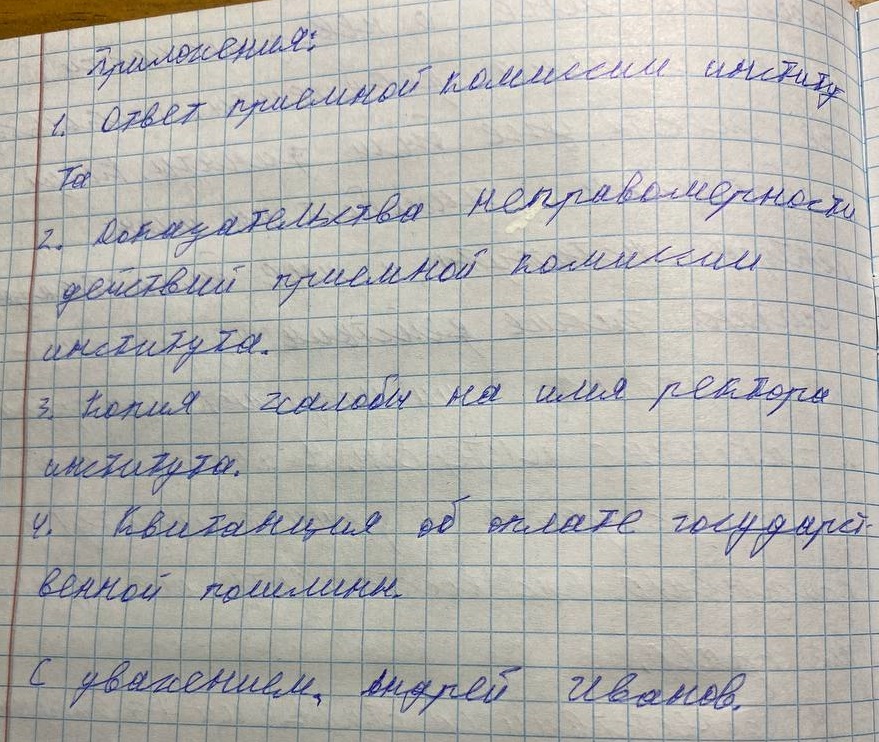 Приложения:
1. Ответ приемной комиссии институ
та
2. Доказательства неправомерности
действий приемной комиссии
института.
3. Копия жалобы на имя ректора
института.
4. Квитанция об оплате государст-
венной пошлины.
С уважением, Андрей Иванов.